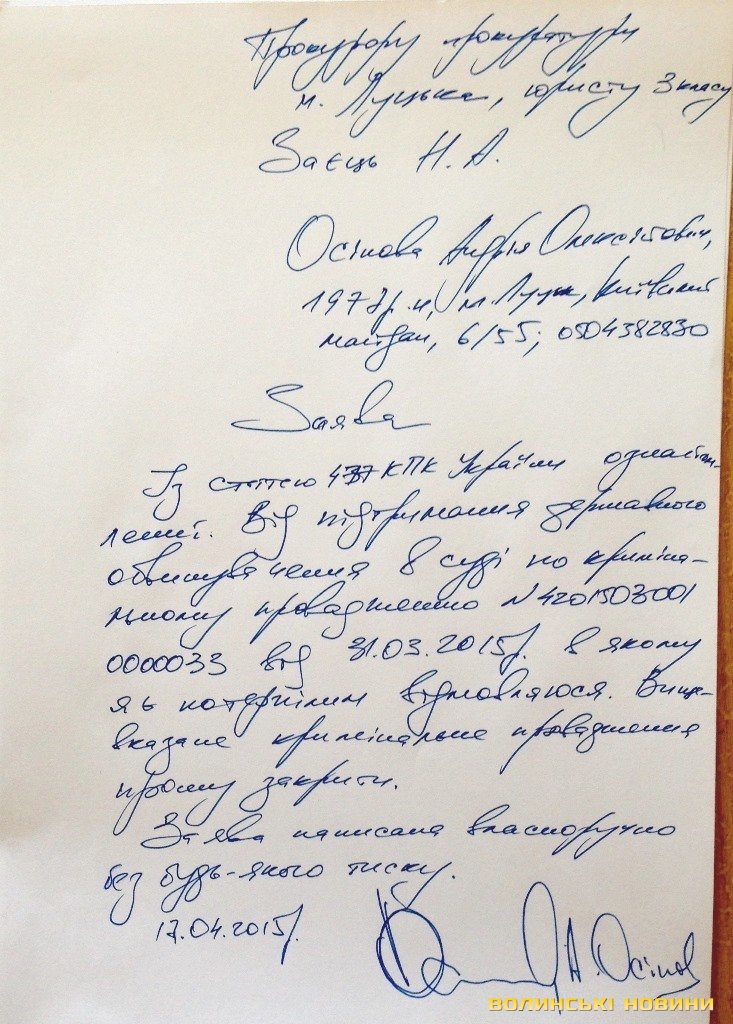 Прокурору прокуратури
м. Луцька, юристу 3 класу
Заєць Н. А.
Осіпова Андрія Олексійович,
197 р.н, м. Луцьк, Київський
майдан, 6/55; 0504382830
Заява
Із статтею КПК України ознайом-
лений. Від підтримання державного
обвинувачення в суді по криміна-
льному провадженню №4201503001
0000033 від 31.03.2015р. в якому
я є потерпілим відмовляюся. Вище-
вказане кримінальне провадження
прошу закрити.
Заява написана власноручно
без будь-якого тиску.
17.04.2015р.
А. Осіпов
ВОЛИНСЬКІ НОВИНИ